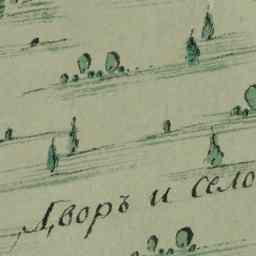 Дворъ и село